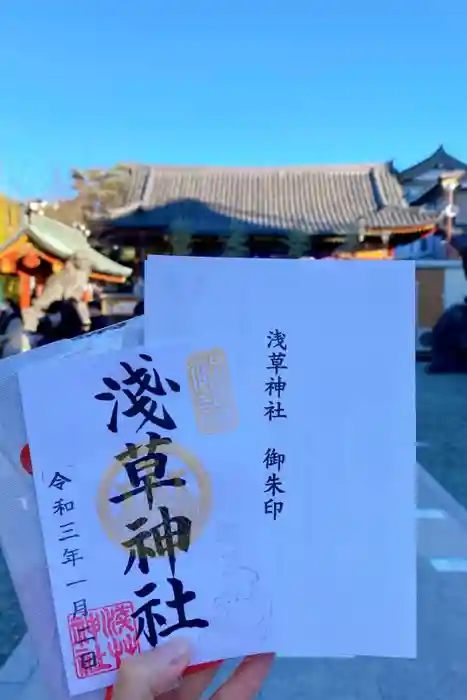 浅草神社 御朱印
淺草神社
令和三年一月 日